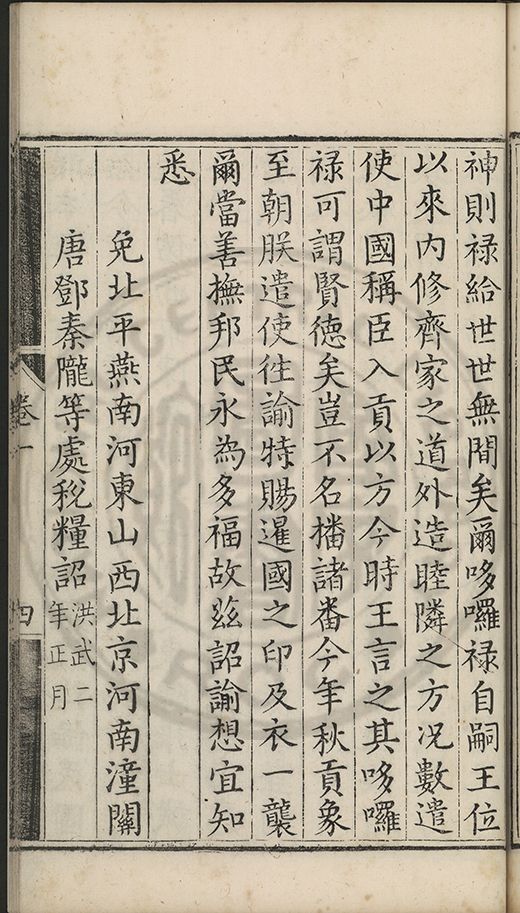 神則祿給世世無間矣爾哆囉祿自嗣王位
以來内修齊家之道外造睦隣之方况數遣
使中國稱臣入貢以方今時王言之其哆囉
祿可謂賢德矣豈不名播諸畨今年秋貢象
至朝朕遣使徃諭特賜暹國之印及衣一襲
爾當善撫邦民永為多福故玆詔諭想宜知
悉
免北平燕南河東山西北京河南潼關
唐鄧秦隴等處稅糧詔洪武二
年正月
卷一
四